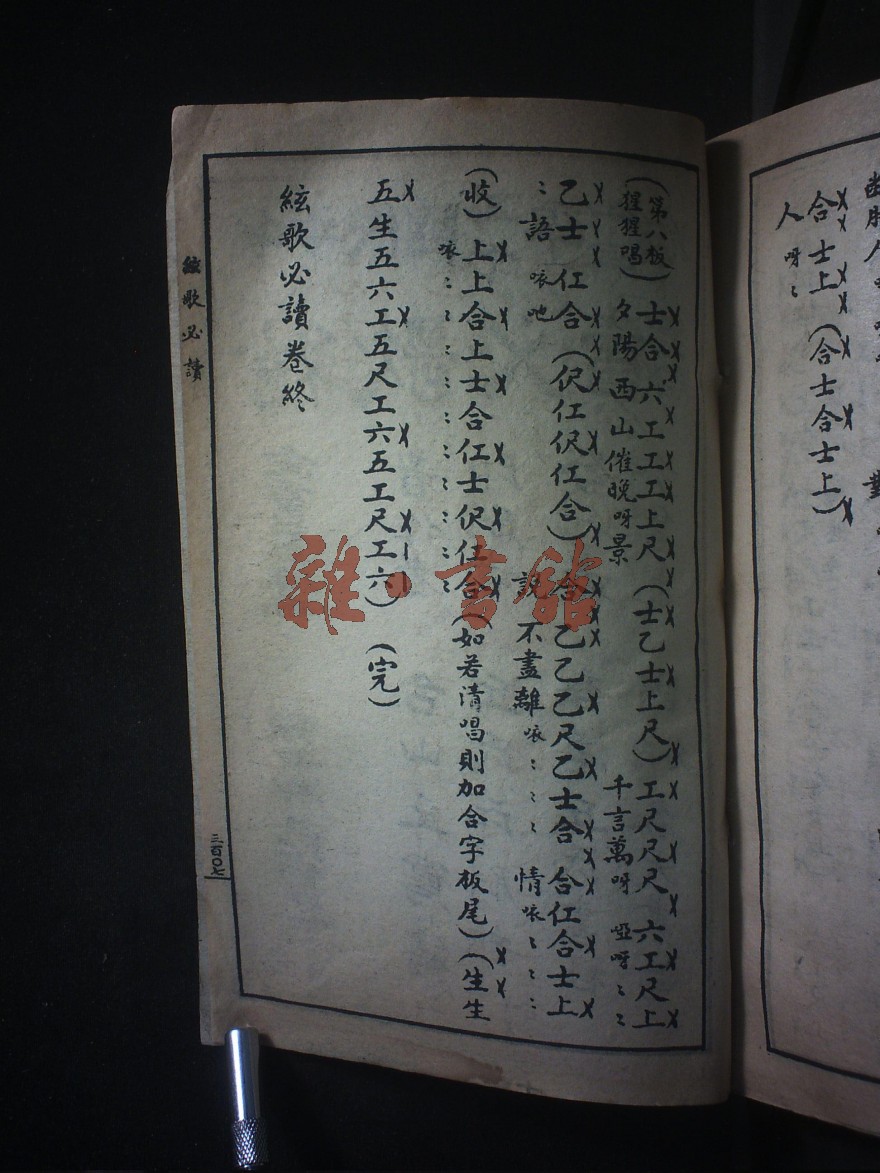 人 呀
合士上(合士合士上)
(第八板)士合六工工工上尺(士乙士上尺)工尺尺尺六工尺上
(猩猩唱)夕陽西山催晚呀景 千言萬呀 啞呀:::
乙士仜合(伬仜伬仜合)合乙乙乙尺乙士合 合仜合士上
:語 咳吔 說 不盡離咳::: 情咳:::
(收)上上合上士合仜士伬仜合(如若清唱則加合字板尾)(生生
咳::::::::::
五生五六工五尺工六五工尺工六)(完)
絃歌必讀卷終
絃歌必讀
三百〇七
雜·書館